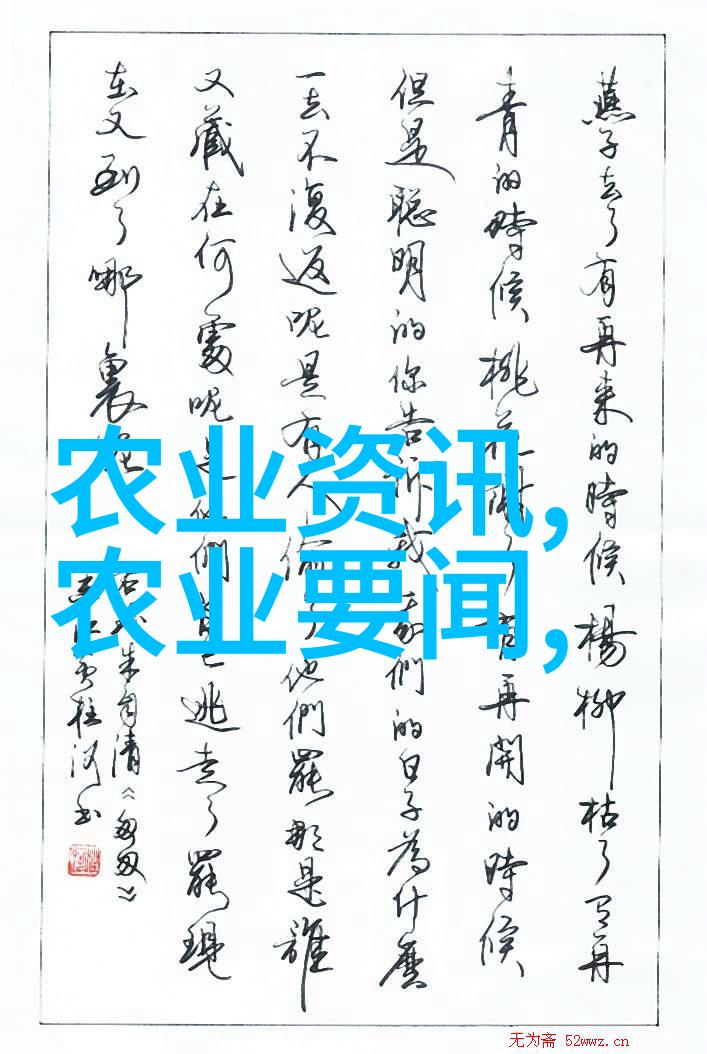 燕子去了有再来的時候楊柳枯了有再
青的時候桃花謝了有再開的時候
但是聪明的你告訴我我們的日子為什麽
一去不復返呢是有人偷了他們罷那是誰
又藏在何處呢是他們自己逃走了罷現
在又到了哪裏呢
朱自清《匆匆》
书
农业资讯,
农业要闻,
无为斋 52wwz.cn